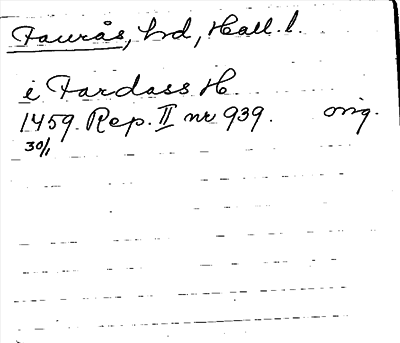 Faurås, hd, Hall. l.
i Fardass H
1459 Rep. II nr 939. orig.
30/1